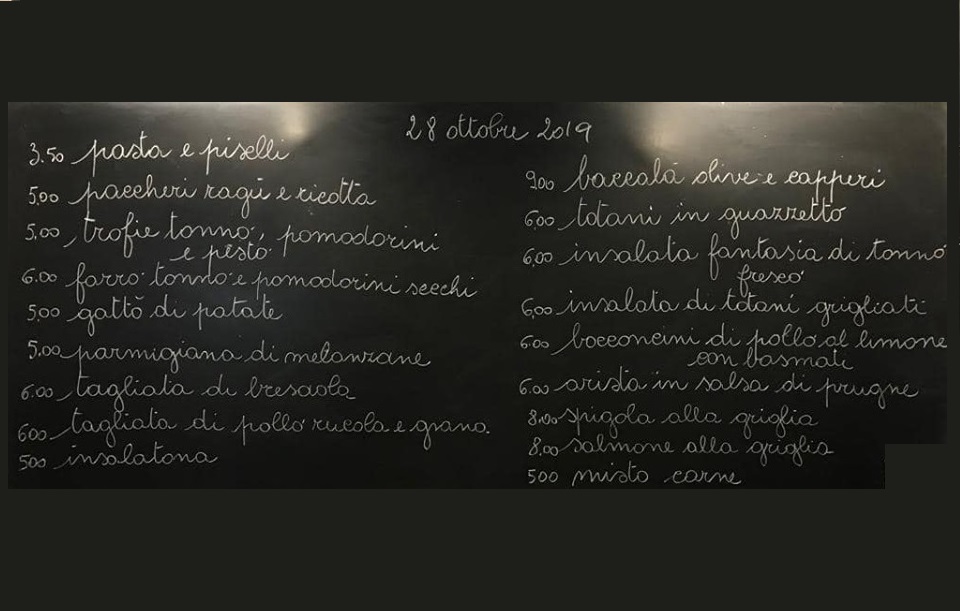 28 ottobre 2019
3.50 pasta e piselli
5,00 paccheri ragù e ricotta
5,00 trofie tonno, pomodorini
e pesto
6.00 farro tonno e pomodorini secchi
5,00 gattò di patate
5,00 parmigiana di melanzane
6.00 tagliata di bresaola
600 tagliata di pollo rucola e grana.
500 insalatona
900 baccalà olive e capperi
6,00 totani in guazzetto
6,00 insalata fantasia di tonno
fresco
6,00 insalata di totani grigliati
6,00 bocconcini di pollo al limone
con basmati
6,00 arista in salsa di prugne
8,00 spigola alla griglia
8,00 salmone alla griglia
500 misto carne